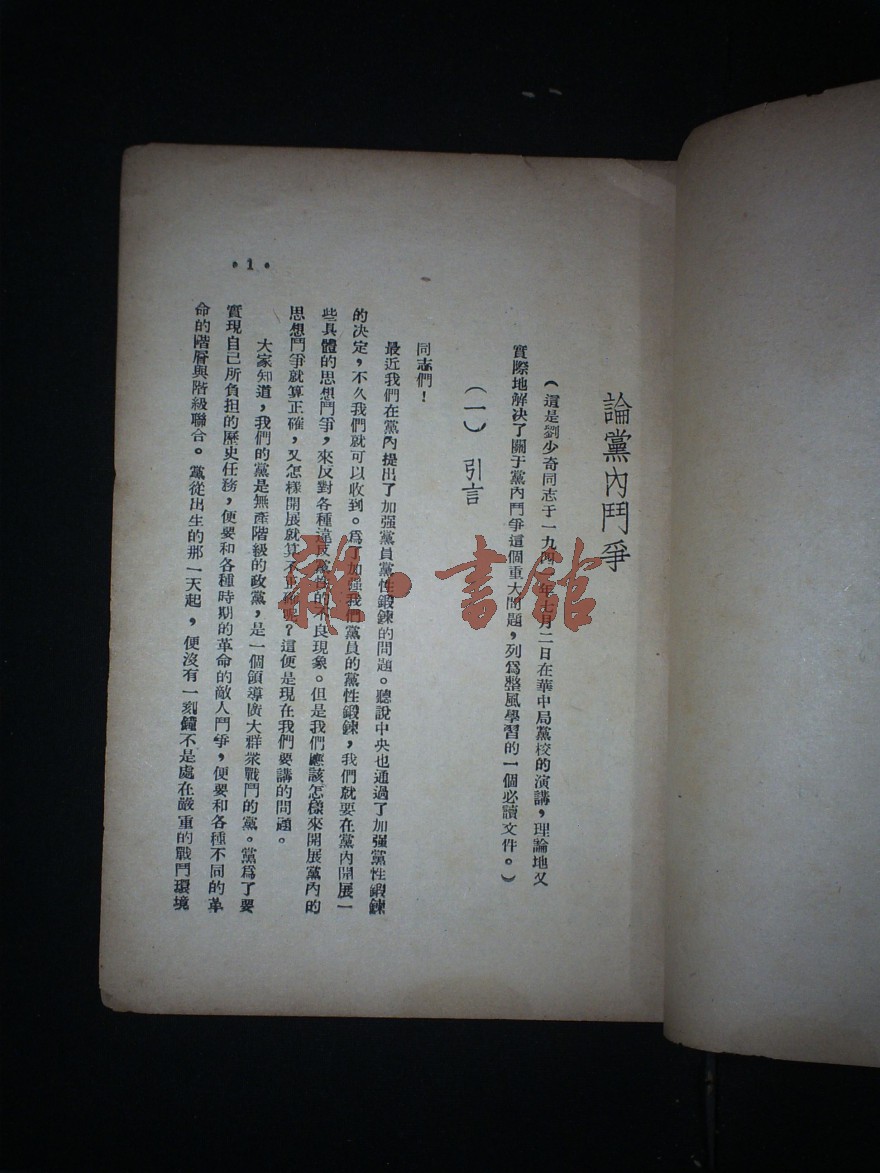 論黨內鬥爭
(這是劉少奇同志于一九四一年七月二日在華中局黨校的演講,理論地又
實際地解决了關于黨內鬥爭這個重大問題,列爲整風學習的一個必讀文件。)
(一) 引言
同志們!
最近我們在黨內提出了加强黨員黨性鍛鍊的問題。聽說中央也通過了加强黨性鍛鍊
的决定,不久我們就可以收到。爲了加强我們黨員的黨性鍛鍊,我們就要在黨內開展一
些具體的思想鬥爭,來反對各種違反黨性的不良現象。但是我們應該怎樣來開展黨內的
思想鬥爭就算正確,又怎樣開展就算不正確呢?這便是現在我們要講的問題。
大家知道,我們的黨是無產階級的政黨,是一個領導廣大群衆戰鬥的黨。黨爲了要
實現自己所負担的歷史任務,便要和各種時期的革命的敵人鬥爭,便要和各種不同的革
命的階層與階級聯合。黨從出生的那一天起,便沒有一刻鐘不是處在嚴重的戰鬥環境
•1•
雜·書館